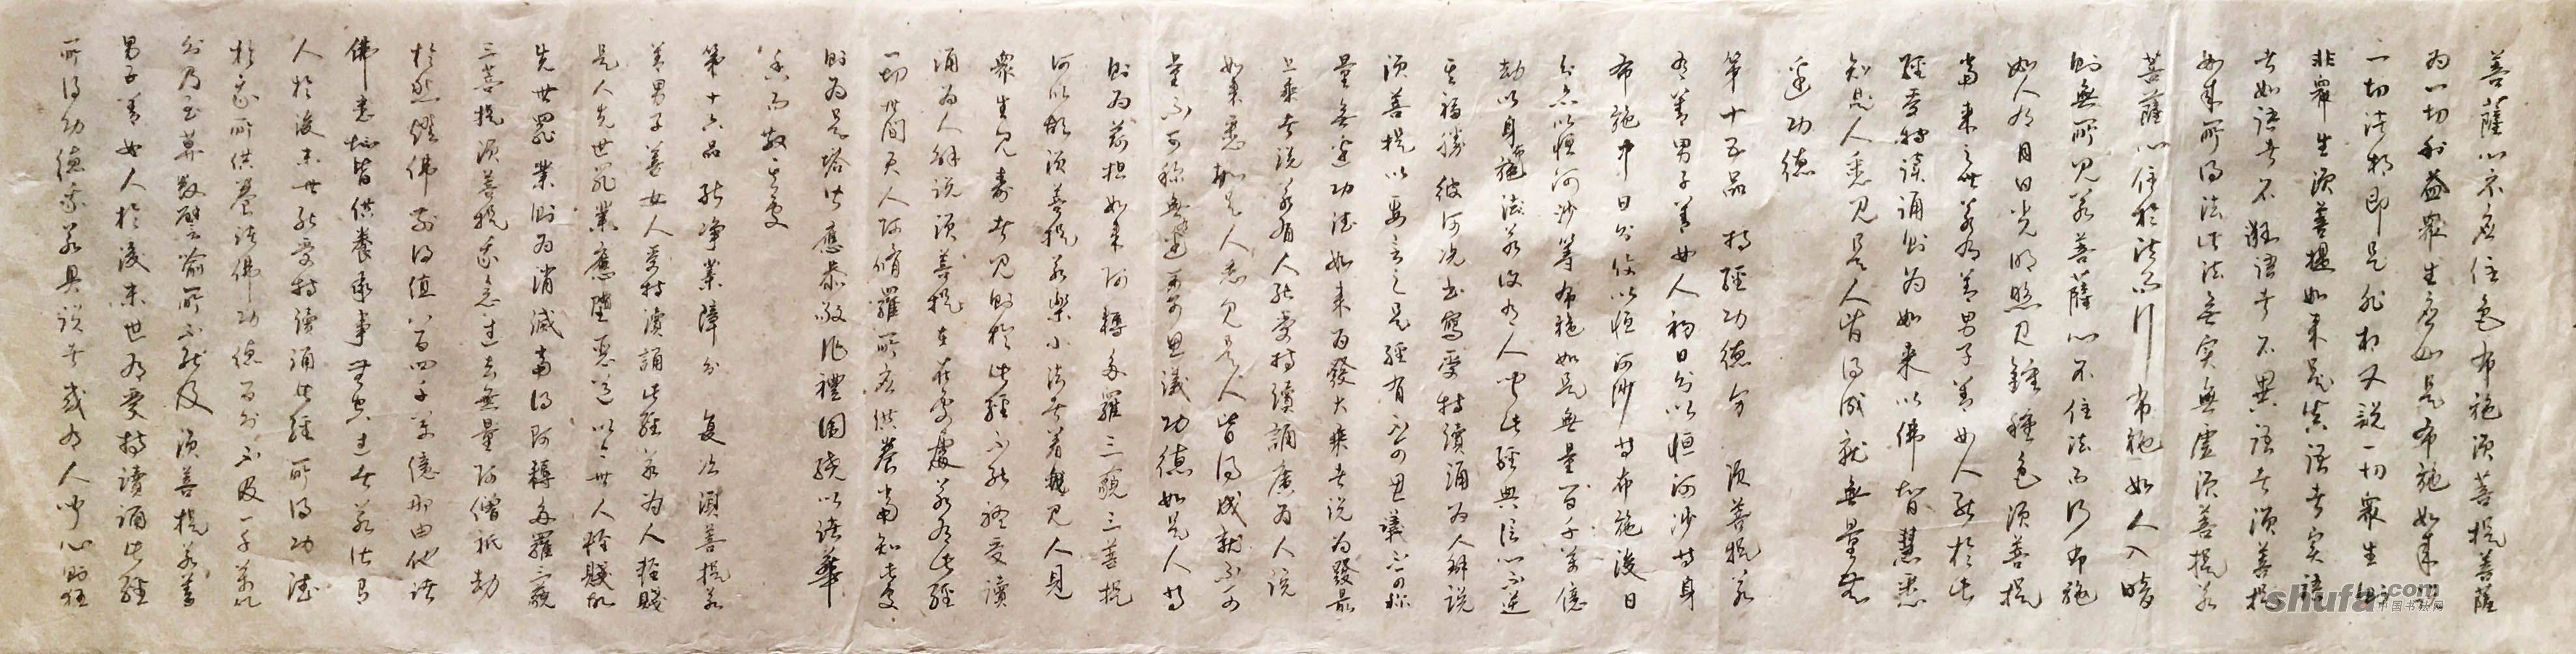 菩薩心不應住色布施須菩提菩薩
為一切利益眾生應如是布施如來說
一切諸相即是非相又說一切眾生則
非眾生須菩提如來是真語者實語
者如語者不誑語者不異語者須菩提
如來所得法此法無實無虛須菩提若
菩薩心住於法而行布施如人入暗
則無所見若菩薩心不住法而行布施
如人有目日光明照見種種色須菩提
當來之世若有善男子善女人能於此
經受持讀誦則為如來以佛智慧悉
知是人悉見是人皆得成就無量無
邊功德
第十五品 持經功德分 須菩提若
有善男子善女人初日分以恒河沙等身
布施中日分復以恒河沙等布施後日
分亦以恒河沙等布施如是無量百千萬億
劫以身施若復有人聞此經典信心不逆
其福勝彼何況書寫受持讀誦為人解說
須菩提以要言之是經有不可思議不可稱
量無邊功德如來為發大乘者說為發最
上乘者說若有人能受持讀誦廣為人說
如來悉知是人悉見是人皆得成就不可
量不可稱無邊不可思議功德如是人等
則為荷担如來阿耨多羅三藐三菩提
何以故須菩提若樂小法者著我見人見
眾生見壽者見則於此經不能聽受讀
誦為人解說須菩提在在處處若有此經
一切世間天人阿脩羅所應供養當知此處
則為是塔皆應恭敬作禮圍繞以諸華
香而散其處
第十六品 能净業障分 复次須菩提若
善男子善女人受持讀誦此經若為人輕賤
是人先世罪業應墮惡道以今世人輕賤故
先世罪業則為消滅當得阿耨多羅三藐
三菩提須菩提我念過去無量阿僧祇劫
於然燈佛前得值八百四千萬億那由他諸
佛悉皆供養承事無空過者若復有
人於後末世能受持讀誦此經所得功德
於我所供養諸佛功德百分不及一千萬億
分乃至算數譬喻所不能及須菩提若善
男子善女人於後末世有受持讀誦此經
所得功德我若具說者或有人聞心則狂
shufa.com
中国书法网